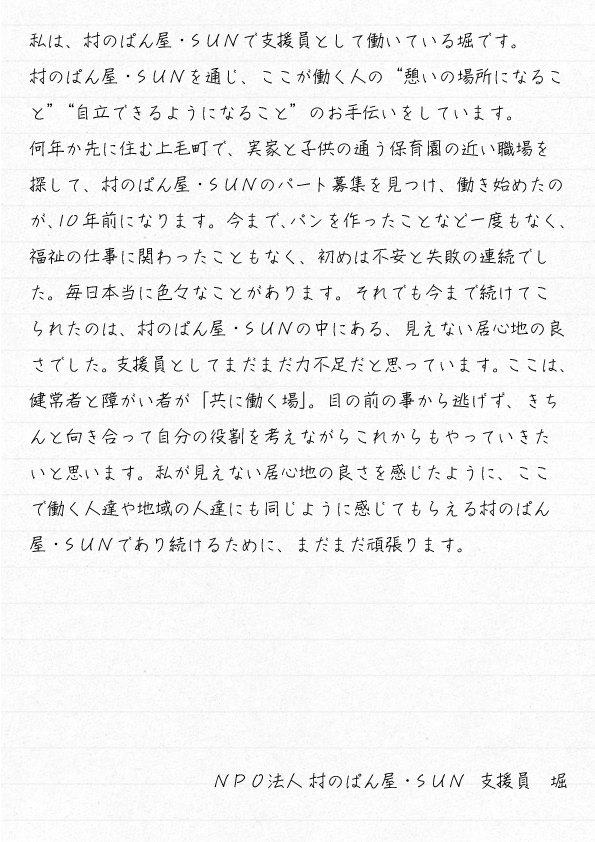 私は、村のぱん屋・SUNで支援員として働いている堀です。
村のぱん屋・SUNを通じ、ここが働く人の“憩いの場所になるこ
と”“自立できるようになること”のお手伝いをしています。
何年か先に住む上毛町で、実家と子供の通う保育園の近い職場を
探して、村のぱん屋・SUNのパート募集を見つけ、働き始めたの
が、10年前になります。今まで、パンを作ったことなど一度もなく、
福祉の仕事に関わったこともなく、初めは不安と失敗の連続でし
た。毎日本当に色々なことがあります。それでも今まで続けてこ
られたのは、村のぱん屋・SUNの中にある、見えない居心地の良
さでした。支援員としてまだまだ力不足だと思っています。ここは、
健常者と障がい者が「共に働く場」。目の前の事から逃げず、きち
んと向き合って自分の役割を考えながらこれからもやっていきた
いと思います。私が見えない居心地の良さを感じたように、ここ
で働く人達や地域の人達にも同じように感じてもらえる村のぱん
屋・SUNであり続けるために、まだまだ頑張ります。
NPO法人 村のぱん屋・SUN　支援員　堀